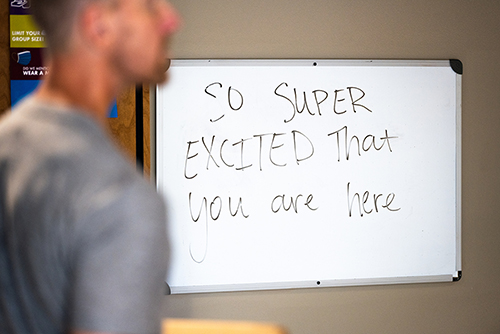 LIMIT YOUR
GROUP SIZE
WEAR A
SO SUPER
EXCITED That
you are here